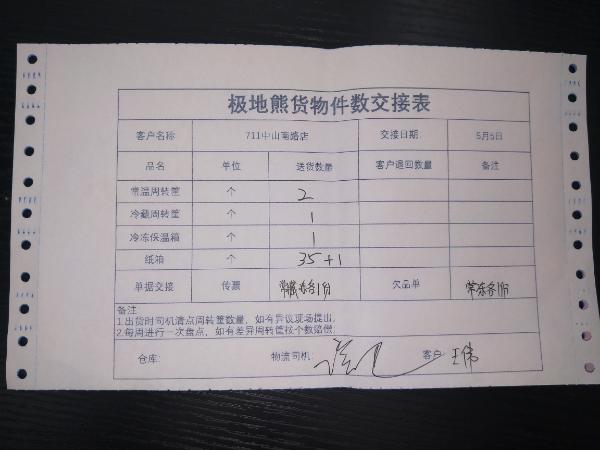 极地熊货物件数交接表
客户名称 711中山南路店 交接日期: 5月5日
品名 单位 送货数量 客户退回数量 备注
常温周转筐 个 2
冷藏周转筐 个 1
冷冻保温箱 个 1
纸箱 个 35+1
单据交接 传票 常藏冻各1份 欠品单 常冻各1份
备注
1.出货时司机清点周转筐数量,如有异议现场提出。
2.每周进行一次盘点,如有差异周转筐按个数赔偿。
仓库: 物流司机: 客户: 王伟